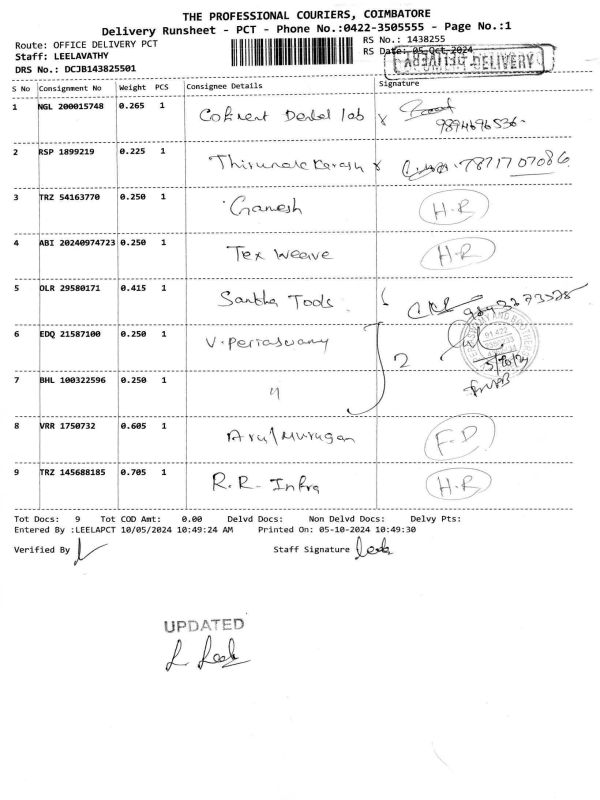 THE PROFESSIONAL COURIERS, COIMBATORE
Delivery Runsheet - PCT - Phone No.:0422-3505555 - Page No.:1
Route: OFFICE DELIVERY PCT
RS No.: 1438255
Staff: LEELAVATHY
RS Date: 05-Oct-2024
DRS No.: DCJB143825501
DELIVERY
S No Consignment No Weight PCS Consignee Details Signature
1 NGL 200015748 0.265 1 Dental lab x
9894696536-
2 RSP 1899219 0.225 1 x 7871707086
3 TRZ 54163770 0.250 1 Ganesh H-R
4 ABI 20240974723 0.250 1 Tex weave H-R
5 OLR 29580171 0.415 1 Santha Tools
6 EDQ 21587100 0.250 1 V. Periaswamy 2
5/10/24
7 BHL 100322596 0.250 1 "
8 VRR 1750732 0.605 1 Arulmurugan F-D
9 TRZ 145688185 0.705 1 R.R- Infra H-R
Tot Docs: 9 Tot COD Amt: 0.00 Delvd Docs: Non Delvd Docs: Delvy Pts:
Entered By :LEELAPCT 10/05/2024 10:49:24 AM Printed On: 05-10-2024 10:49:30
Verified By Staff Signature Leela
UPDATED
L Leela